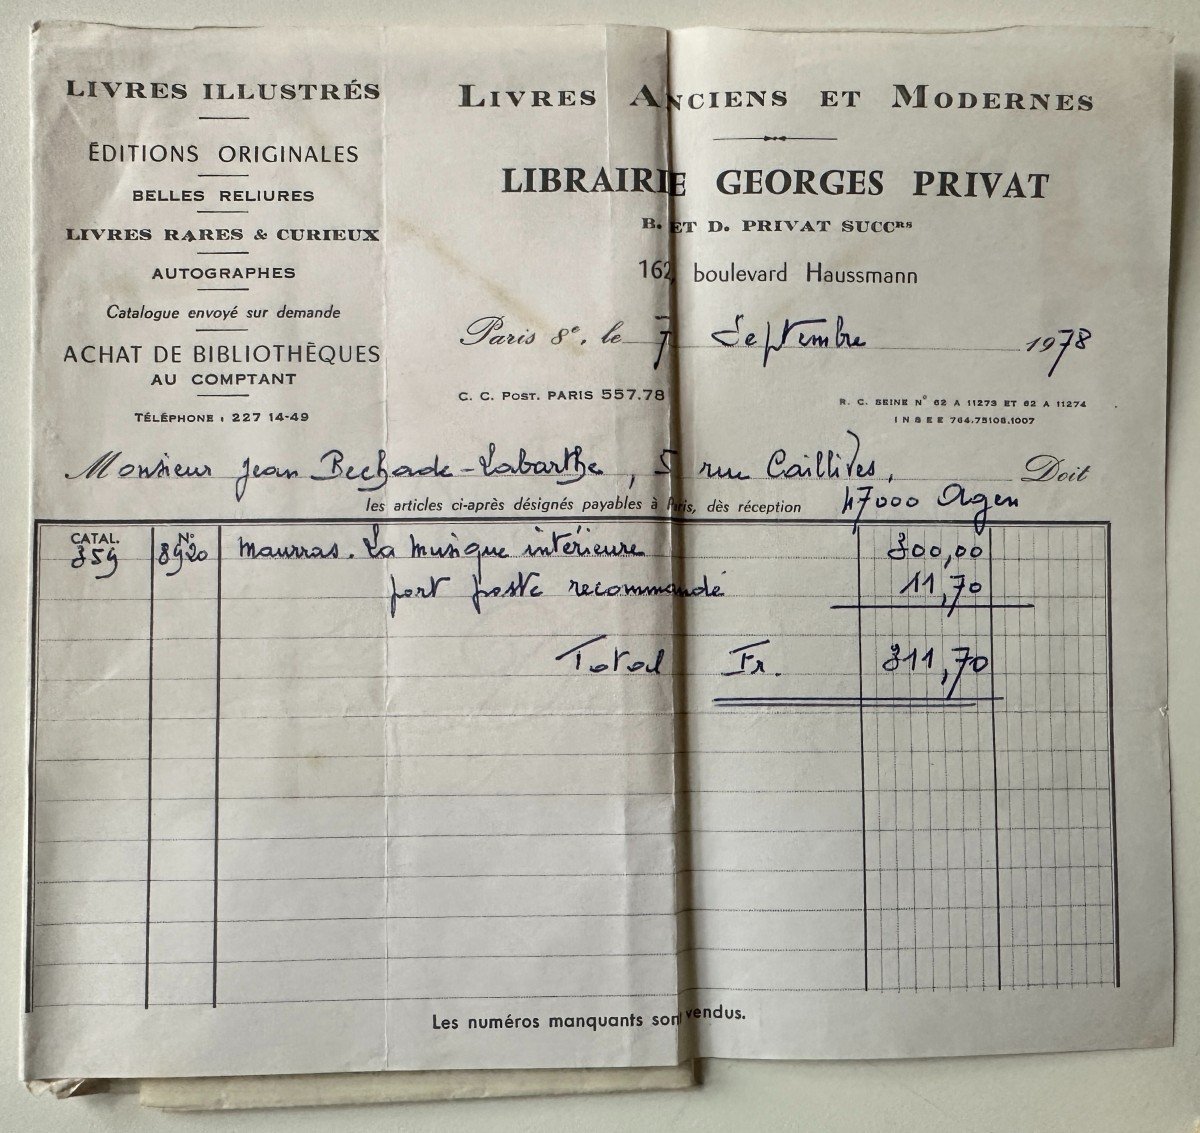 LIVRES ILLUSTRÉS
ÉDITIONS ORIGINALES
BELLES RELIURES
LIVRES RARES & CURIEUX
AUTOGRAPHES
Catalogue envoyé sur demande
ACHAT DE BIBLIOTHÈQUES
AU COMPTANT
TÉLÉPHONE : 227 14-49
LIVRES ANCIENS ET MODERNES
LIBRAIRIE GEORGES PRIVAT
B. ET D. PRIVAT SUCCRS
162, boulevard Haussmann
Paris 8e, le 7 Septembre 1978
C. C. POST. PARIS 557.78
R. C. SEINE N° 62 A 11273 ET 62 A 11274
INSEE 764.75108.1007
Monsieur Jean Bechade-Labarthe, 5 rue Caillives, Doit
47000 Agen
les articles ci-après désignés payables à Paris, dès réception
CATAL. N°
359 8920 Maurras. La Musique intérieure 300,00
port poste recommandé 11,70
Total Fr. 311,70
Les numéros manquants sont vendus.